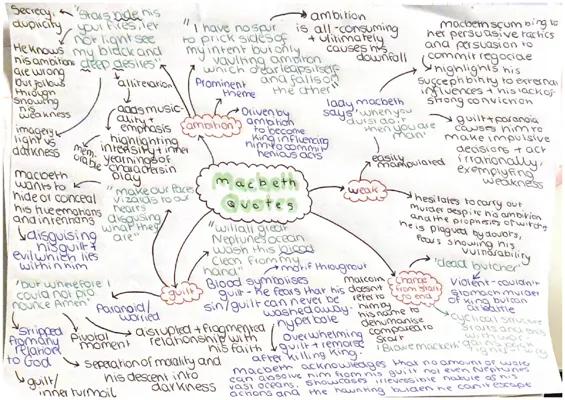 Secrecy,
duplicity
"Stars hide his
your fires, let
not light see
my black and
deep desires"
He knows
his ambition
are wrong
showing
his
weakness
imagery
light vs
darkness
alliteration
adds music-
ality +
emphasis
highlighting
intensity + inner
yearnings of
character in
play
"I have no spur
to prick sides of
my intent but only
vaulting ambition
which
falls on
the other"
ambition
is all-consuming
+ ultimately
causes his
downfall
Prominent
theme
ambition
Driven by
ambition
to become
king influencing
him to commit
heinous acts
lady macbeth
says "when you
durst do it then
then you are
man"
macbeth
her persuasive tactics
and persuasion to
commit regicide
highlights his
susceptibility to external
influences + his lack of
strong conviction
guilt + paranoia
causes him to
make impulsive
decisions + act
irrationally,
exemplifying
weakness
easily
manipulated
weak
hesitates to carry out
murder despite his ambition
and the prophesies of witches
he is plagued by doubts,
fears showing his
vulnerability
macbeth
quotes
macbeth
wants to
hide or conceal
his true emotions
and intentions
disguising
his guilt +
evil which lies
within him
"make our faces
vizards to our
hearts
disguising
what they
are"
"will all great
Neptune's ocean
wash this blood
clean from my
hand"
motif throughout
Blood symbolises
guilt - he fears that his
sin/guilt can never be
washed away.
hyperbole
Overwhelming
guilt + remorse
after killing king.
guilt
"but wherefore I
could not pronounce Amen"
Paranoid/
worried
stripped
from any
relation
to God
guilt/
inner turmoil
Pivotal
moment
disrupted + fragmented
relationship with
his faith
Separation of morality and
his descent into
darkness
Change
from start
to end
malcolm
doesn't
refer to
him by
his name to
compared to
start
"dead butcher"
Violent -
murder
of king but can
battle
"Brave macbeth"
macbeth acknowledges that no amount of water
can absolve him from his guilt not even Neptunes
vast oceans. showcases irreversible nature of his
actions and the haunting burden he can't escape